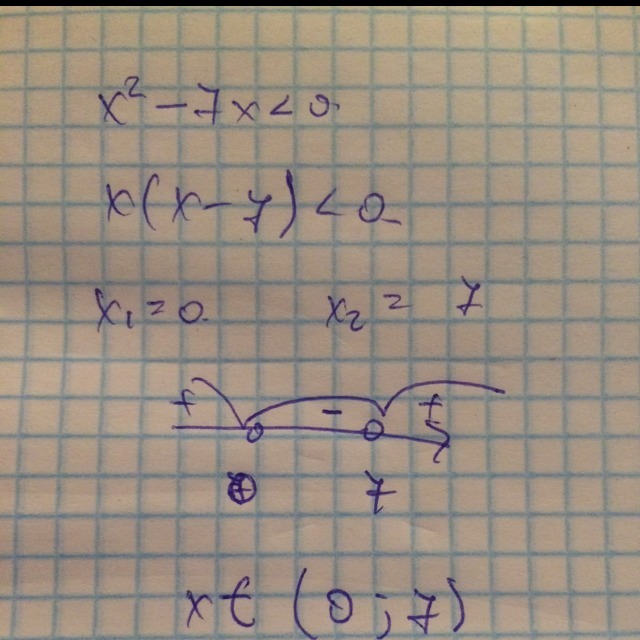 x² - 7x < 0
x(x - 7) < 0
x₁ = 0 x₂ = 7
+ - +
7
x ∈ (0; 7)